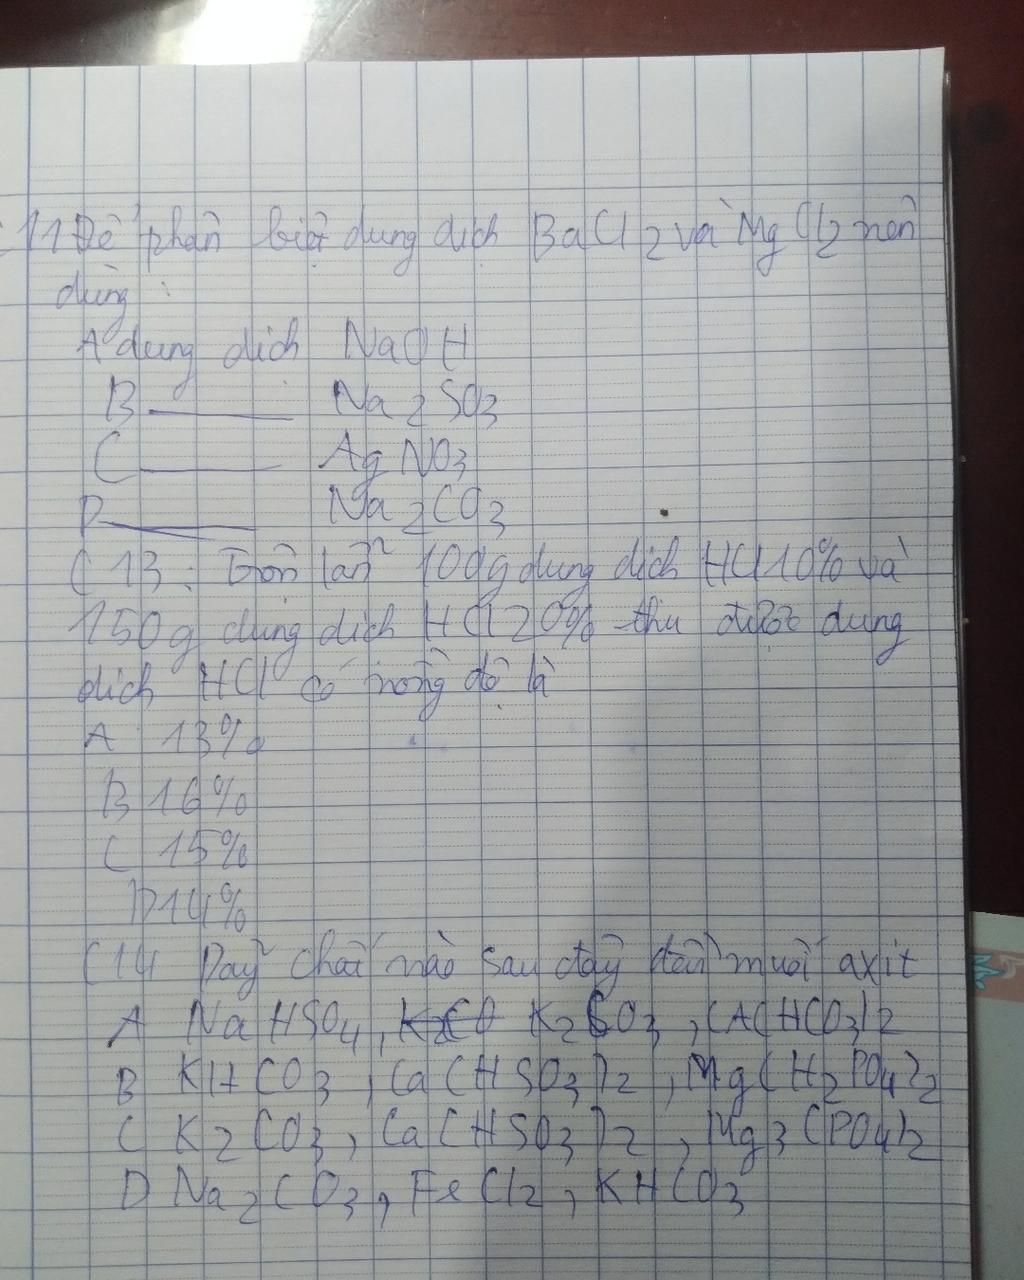 11 Để phân biệt dung dịch BaCl2 và MgCl2 nên
dùng :
A dung dịch NaOH
B ——— Na2SO3
C ——— AgNO3
D ——— Na2CO3
C13: Trộn lẫn 100g dung dịch HCl 10% và
150g dung dịch HCl 20% thu được dung
dịch HCl có nồng độ là
A 13%
B 16%
C 15%
D 14%
C14 Dãy chất nào sau đây đều muối axit
A NaHSO4, K2CO3, CA(HCO3)2
B KHCO3, Ca(HSO3)2, Mg(H2PO4)2
C K2CO3, Ca(HSO3)2, Mg3(PO4)2
D Na2CO3, FeCl2, KHCO3